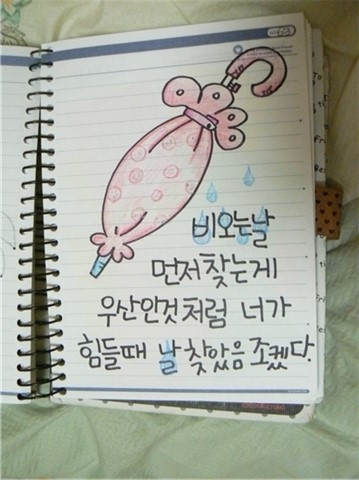 비오는날
먼저찾는게
우산인것처럼 너가
힘들때 날 찾았음 조켔다.